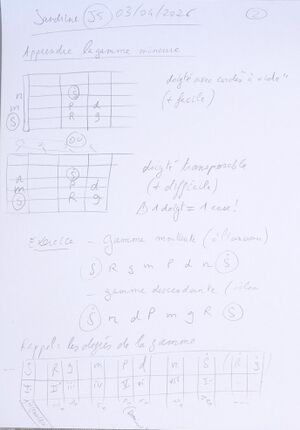 Sandrine JS 03/04/2026 2
Apprendre la gamme mineure
n Ṡ doigté avec cordes à "vide"
m P d (+ facile)
S R g
00
n Ṡ doigté transposable
m P d (+ difficile)
S R g ⚠ 1 doigt = 1 case!
Exercice - gamme montante (à l'unisson)
S R g m P d n Ṡ
- gamme descendante (
Ṡ n d P m g R S
Rappel: les degrés de la gamme
S R g m P d n Ṡ (R g)
I II iii iv V vi vii I